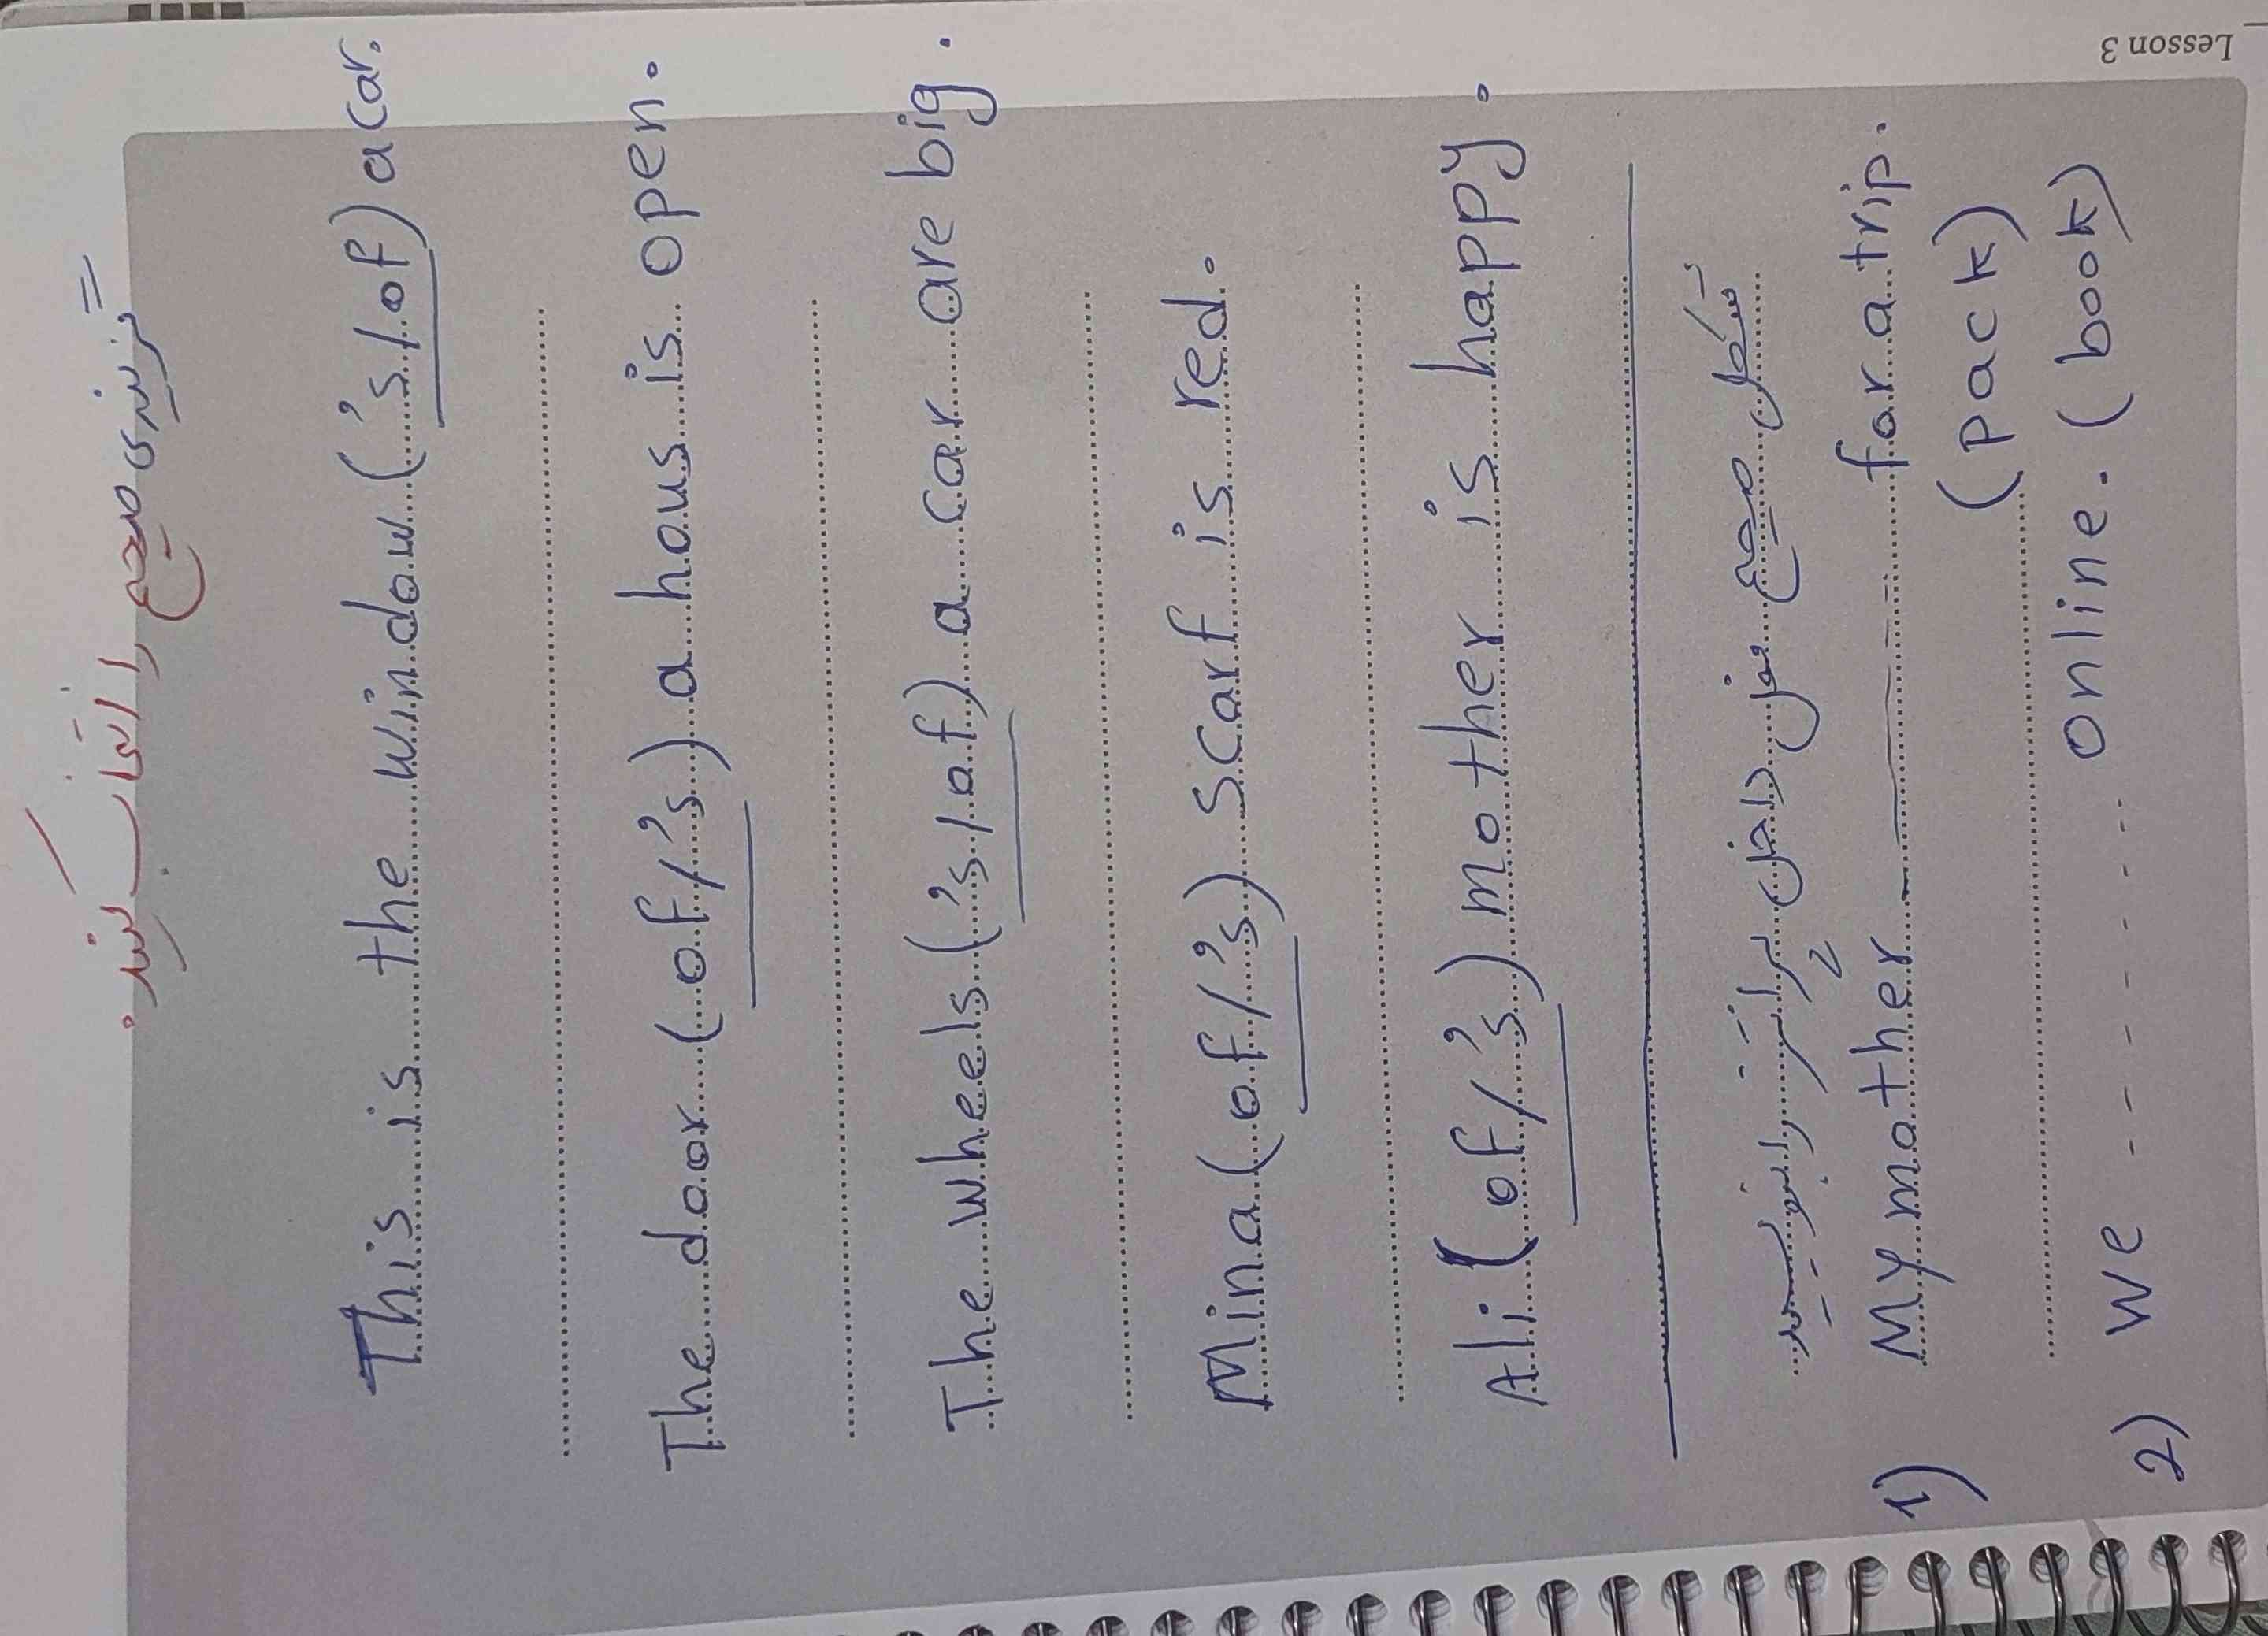 گزینه‌ی صحیح را انتخاب کنید
This is the window ('s / of) a car.
The door (of / 's) a hous is open.
The wheels ('s / of) a car are big.
Mina (of / 's) scarf is red.
Ali (of / 's) mother is happy.
شکل صحیح فعل داخل پرانتز را بنویسید
1) My mother ------ for a trip.
(pack)
2) We ------ online. (book)
Lesson 3